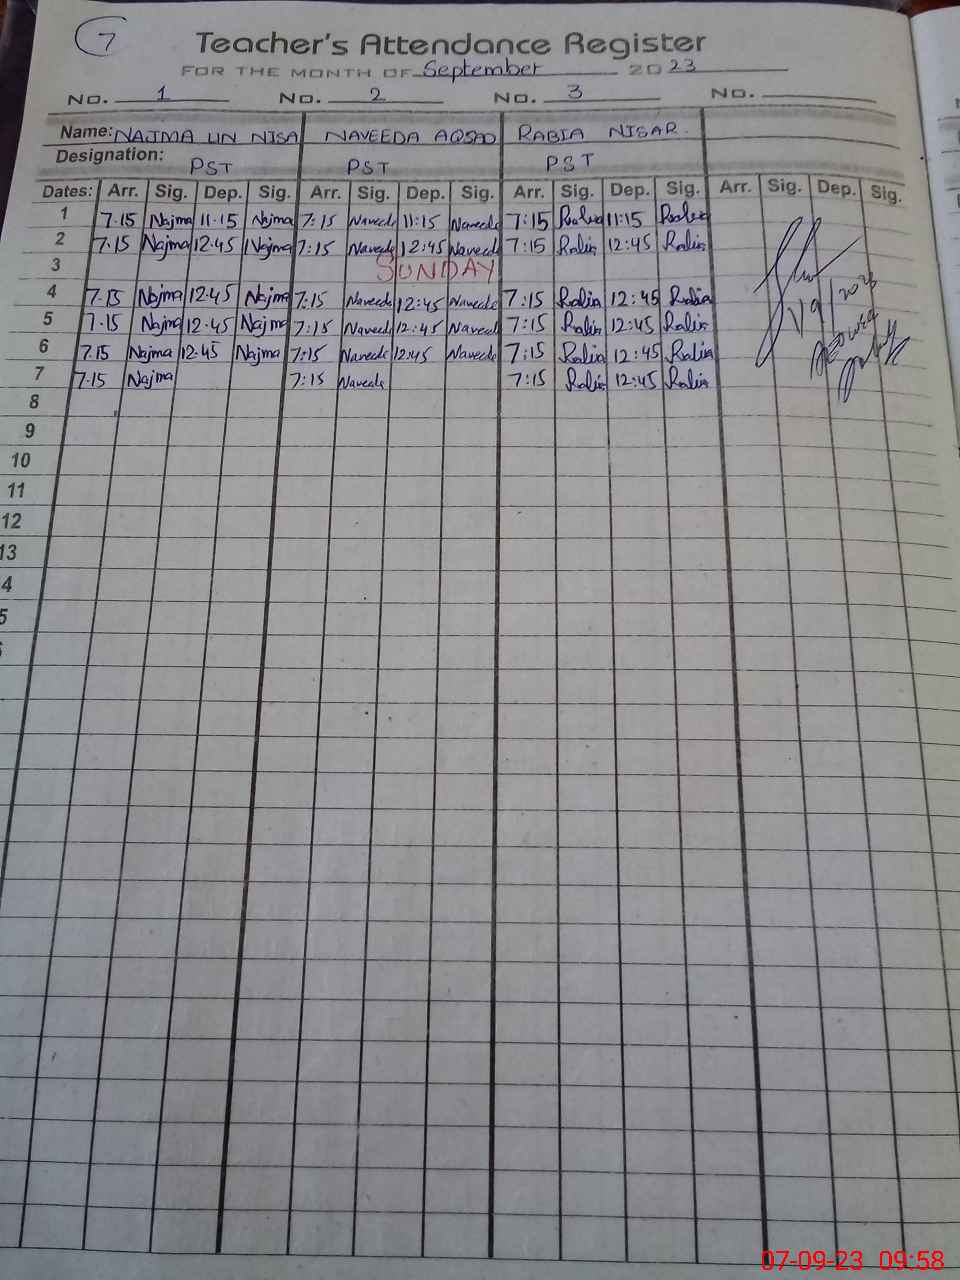 7
Teacher's Attendance Register
FOR THE MONTH OF September 2023
No. 1 No. 2 No. 3 No.
Name: NAJMA UN NISA NAVEEDA AQSAD RABIA NISAR.
Designation: PST PST PST
Dates: Arr. Sig. Dep. Sig. Arr. Sig. Dep. Sig. Arr. Sig. Dep. Sig. Arr. Sig. Dep. Sig.
1 7.15 Najma 11.15 Najma 7:15 Naveeda 11:15 Naveeda 7:15 Rabia 11:15 Rabia
2 7.15 Najma 12.45 Najma 7:15 Naveeda 12:45 Naveeda 7:15 Rabia 12:45 Rabia
3 SUNDAY
4 7.15 Najma 12.45 Najma 7:15 Naveeda 12:45 Naveeda 7:15 Rabia 12:45 Rabia
5 7.15 Najma 12.45 Najma 7:15 Naveeda 12:45 Naveeda 7:15 Rabia 12:45 Rabia
6 7.15 Najma 12.45 Najma 7:15 Naveeda 12:45 Naveeda 7:15 Rabia 12:45 Rabia
7 7.15 Najma 7:15 Naveeda 7:15 Rabia 12:45 Rabia
8
9
10
11
12
13
4
5
07-09-23 09:58